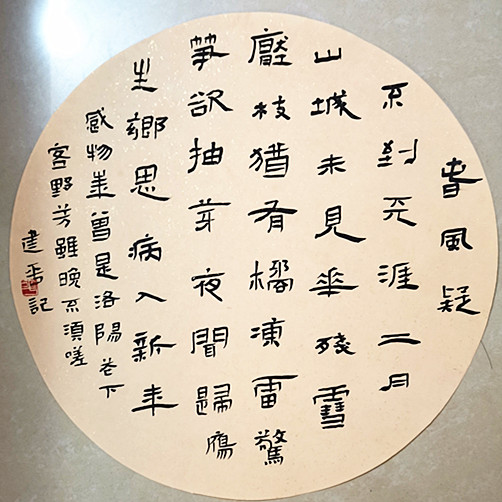 春風疑
不到天涯二月
山城未見華殘雪
壓枝猶有橘凍雷驚
笋欲抽芽夜聞歸鴈
生鄉思病入新年
感物華曾是洛陽花下
客野芳雖晚不須嗟
建記